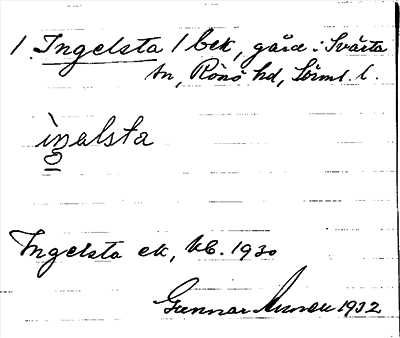 1. Ingelsta 1 bek, gård i Svärta
sn, Rönö hd, Sörml. l.
ìŋalsta
Ingelsta ek, kb. 1930
Gunnar 1932